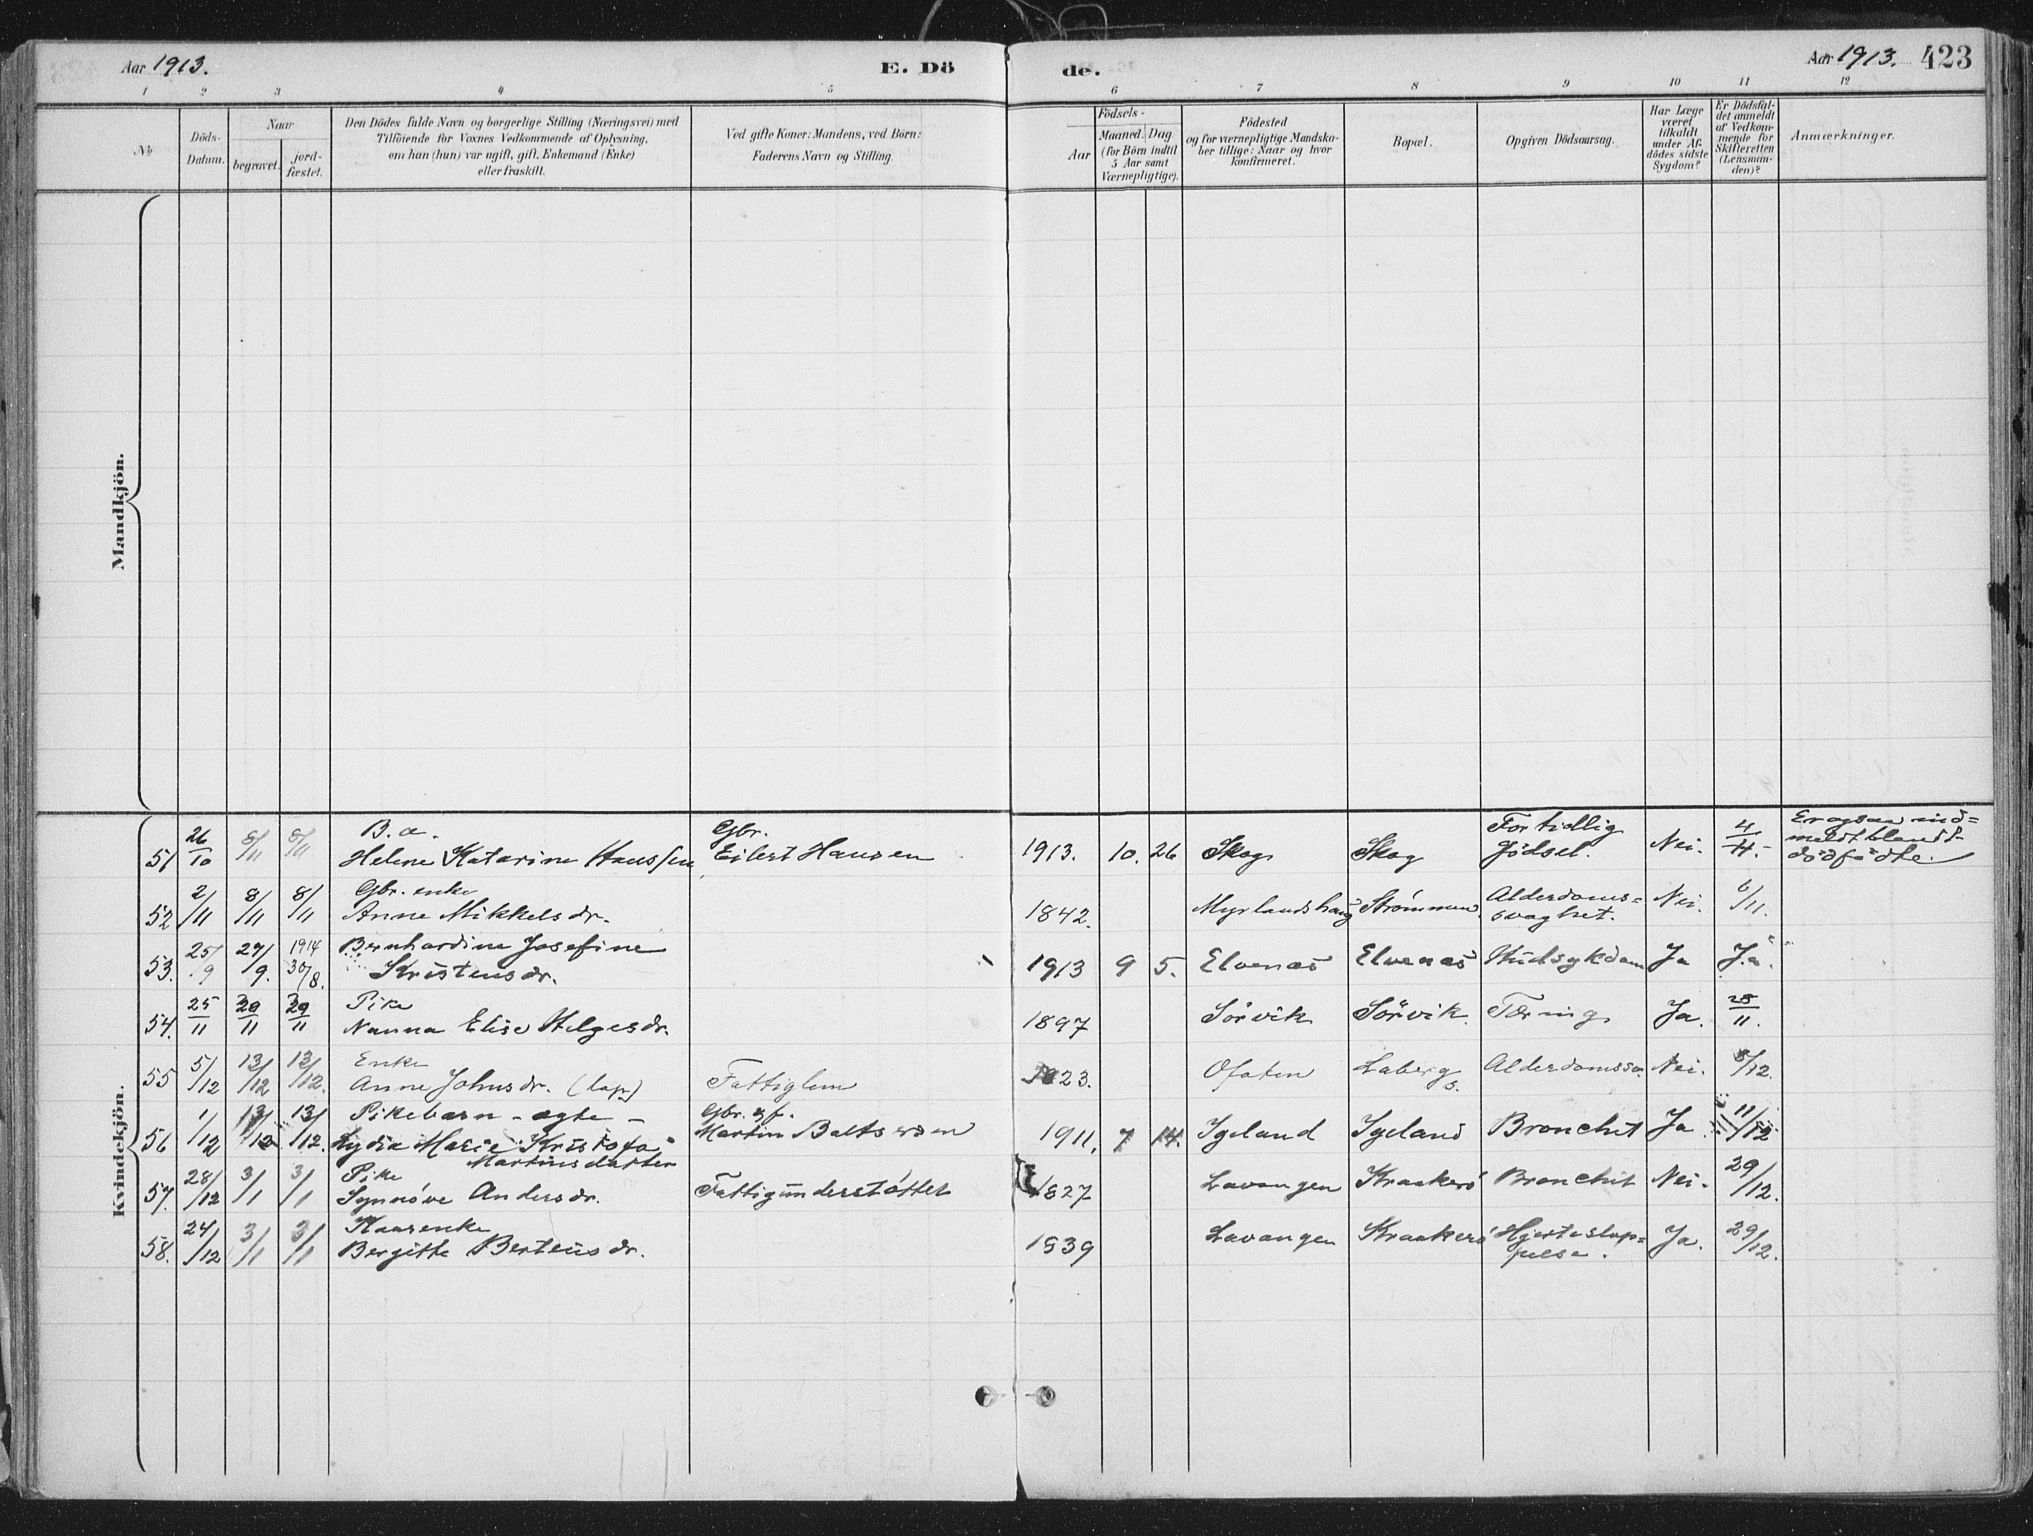 Aar 1913.
E. Dö
de.
Aar 1913. 423
1 2 3 4 5 6 7 8 9 10 11 12
No
Döds-
Datum.
Naar
begravet.
jord-
fæstet.
Den Dödes fulde Navn og borgerlige Stilling (Næringsvei) med
Tilföiende for Voxnes Vedkommende af Oplysning,
om han (hun) var ugift, gift, Enkemand (Enke)
eller fraskilt.
Ved gifte Koner: Mandens, ved Börn:
Faderens Navn og Stilling.
Födsels-
Aar
Maaned. Dag.
(for Börn indtil
5 Aar samt
Værnepligtige).
Födested
og for værnepligtige Mandska-
ber tillige: Naar og hvor
konfirmeret.
Bopæl.
Opgiven Dödsaarsag.
Har Læge
været
tilkaldt
under Af-
dödes sidste
Sygdom?
Er Dödsfal-
det anmeldt
af Vedkom-
mende for
Skifteretten
(Lensman-
den)?
Anmærkninger.
Mandkjön.
Kvindekjön.
51 26/10 8/11 8/11 B. æ.
Helene Katarine Hanssen
Gbr.
Eilert Hansen
1913. 10. 26 Skog Skog For tidlig
födsel. Nei. 4/11. Er ogsaa ind=
meldt blandt
dödfödte.
52 2/11 8/11 8/11 Gbr. enke
Anne Mikkelsdr.
1842. Myrlandshaug Strømmen Alderdoms=
svaghet. Nei. 6/11.
53. 25/9 27/9. 1914
30/8. Bernhardine Josefine
Kristensdr.
1913 9 5. Elvenæs Elvenæs Hudsykdom Ja Ja.
54. 25/11 29/11 29/11 Pike
Nanna Elise Helgesdr.
1897 Sörvik Sörvik. Tæring Ja. 28/11.
55 5/12 13/12 13/12. Enke
Anne Johnsdr. (lap) Fattiglem
1823. Ofoten Labergs. Nei. 8/12.
56 1/12 13/12 13/12. Pikebarn - ægte -
Lydia Marie Kristofa
Martinsdatter
Gbr. &f.
Martin Baltsersen
1911, 7 14. Igeland Igeland Bronchit Ja 11/12
57. 28/12 3/1 3/1 Pike
Synnöve Andersdr. Fattigunderstöttet
1827 Lavangen Kraakerö Bronchit Nei. 29/12.
58. 24/12 3/1 3/1 Kaarenke
Bergitte Berteusdr.
1839 Lavangen Kraakerö Hjerteslap=
pelse. Ja. 29/12.